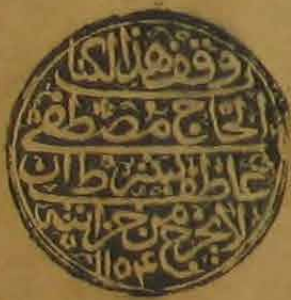 وقف هذا الكتاب
الحاج مصطفى
بشرط ان
لا يخرج من خزانته
١١٥٤